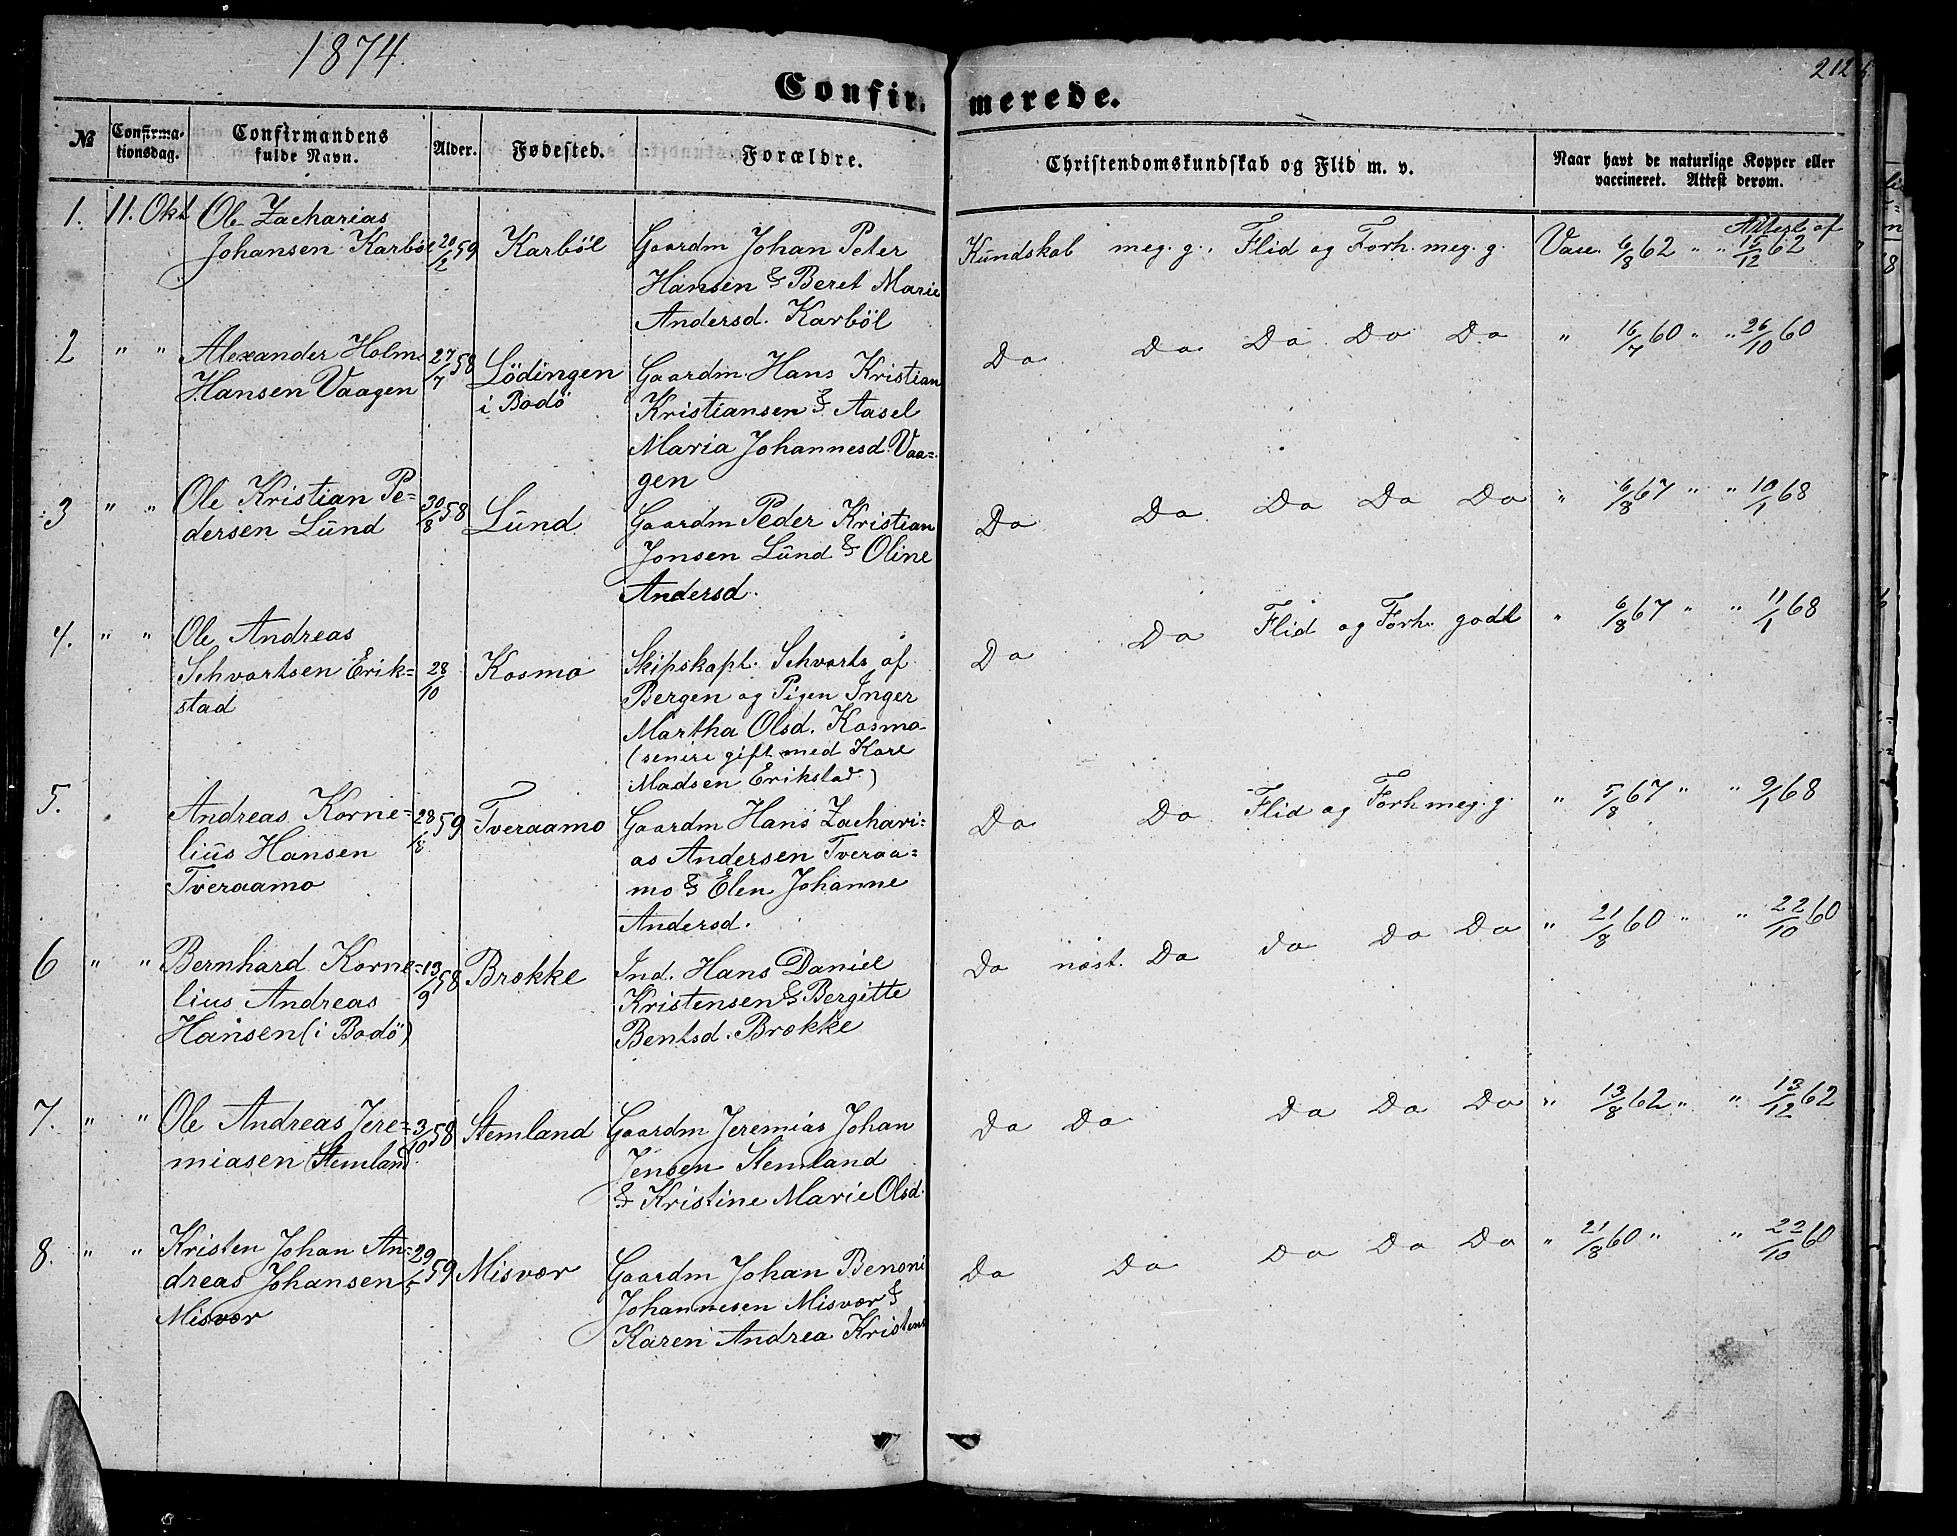 1874.
212
Confir-
merede.
№
Confirma-
tionsdag.
Confirmandens
fulde Navn.
Alder.
Fødested.
Forældre.
Christendomskundskab og Flid m. v.
Naar havt de naturlige Kopper eller
vaccineret. Attest derom.
1. 11. Okt Ole Zacharias
Johansen Karböl 20/2 59 Karböl Gaardm Johan Peter
Hansen & Beret Marie
Andersd. Karböl
Kundskab meg. g., Flid og Forh. meg. g. Vacc. 6/8 62 " " Attest af 15/12 62
2 " " Alexander Holm
Hansen Vaagen 27/7 58 Lödingen
i Bodö
Gaardm. Hans Kristian
Kristiansen & Aasel
Maria Johannesd. Vaa=
gen
Do Do Do Do Do " 16/7 60 " " 26/10 60
3 " " Ole Kristian Pe=
dersen Lund 30/8 58 Lund
Gaardm Peder Kristian
Jonsen Lund & Oline
Andersd.
Do Do Do Do Do " 6/8 67 " " 10/1 68
4. " " Ole Andreas
Schvartsen Erik=
stad 28/10 Kosmo
Skipskapt. Schvarts af
Bergen og Pigen Inger
Martha Olsd. Kosmo
(senere gift med Kare
Madsen Erikstad)
Do Do Flid og Forh. godt " 6/8 67 " " 11/1 68
5. Andreas Korne=
lius Hansen
Tveraamo 28/8 59 Tveraamo
Gaardm Hans Zachari=
as Andersen Tveraa=
mo & Elen Johanne
Andersd.
Do Do Flid og Forh meg. g. " 5/8 67 " " 9/1 68
6 " " Bernhard Korne=
lius Andreas
Hansen (i Bodö) 13/9 58 Brokke
Ind. Hans Daniel
Kristensen & Bergitte
Bentsd. Brokke
Do næst. Do do Do Do " 21/8 60 " " 22/10 60
7. " " Ole Andreas Jere=
miasen Stemland 3/10 58 Stemland
Gaardm Jeremias Johan
Jensen Stemland
& Kristine Marie Olsd.
Do Do Do Do Do " 13/8 62 " " 13/12 62
8. " " Kristen Johan An=
dreas Johansen
Misvær 29/5 59 Misvær
Gaardm Johan Benoni
Johannesen Misvær &
Karen Andrea Kristens
Do Do Do Do Do " 21/8 60 " " 22/10 60